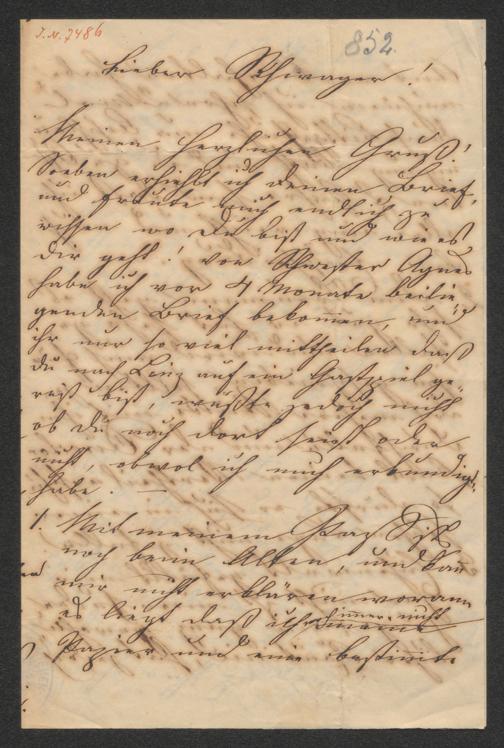 J.N. 7486
852.
Lieber Schwager!
Meinen herzlichen Gruß!
Soeben erhielt ich deinen Brief,
und freute mich endlich zu
wissen wo Du bist und wie es
dir geht! von Schwester Agnes
habe ich vor 4 Monate beilie-
genden Brief bekommen, und
ihr nur so viel mittheilen daß
du nach Linz auf ein Gastspiel ge-
reist bist, wußte jedoch nicht
ob du noch dort seist oder
nicht, obwol ich mich erkundigt
habe. —
Mit meinem Paß ist
noch beim Alten, und kann
mir nicht erklären woran
es liegt daß ich immer nicht
Papier und eine bestimmte